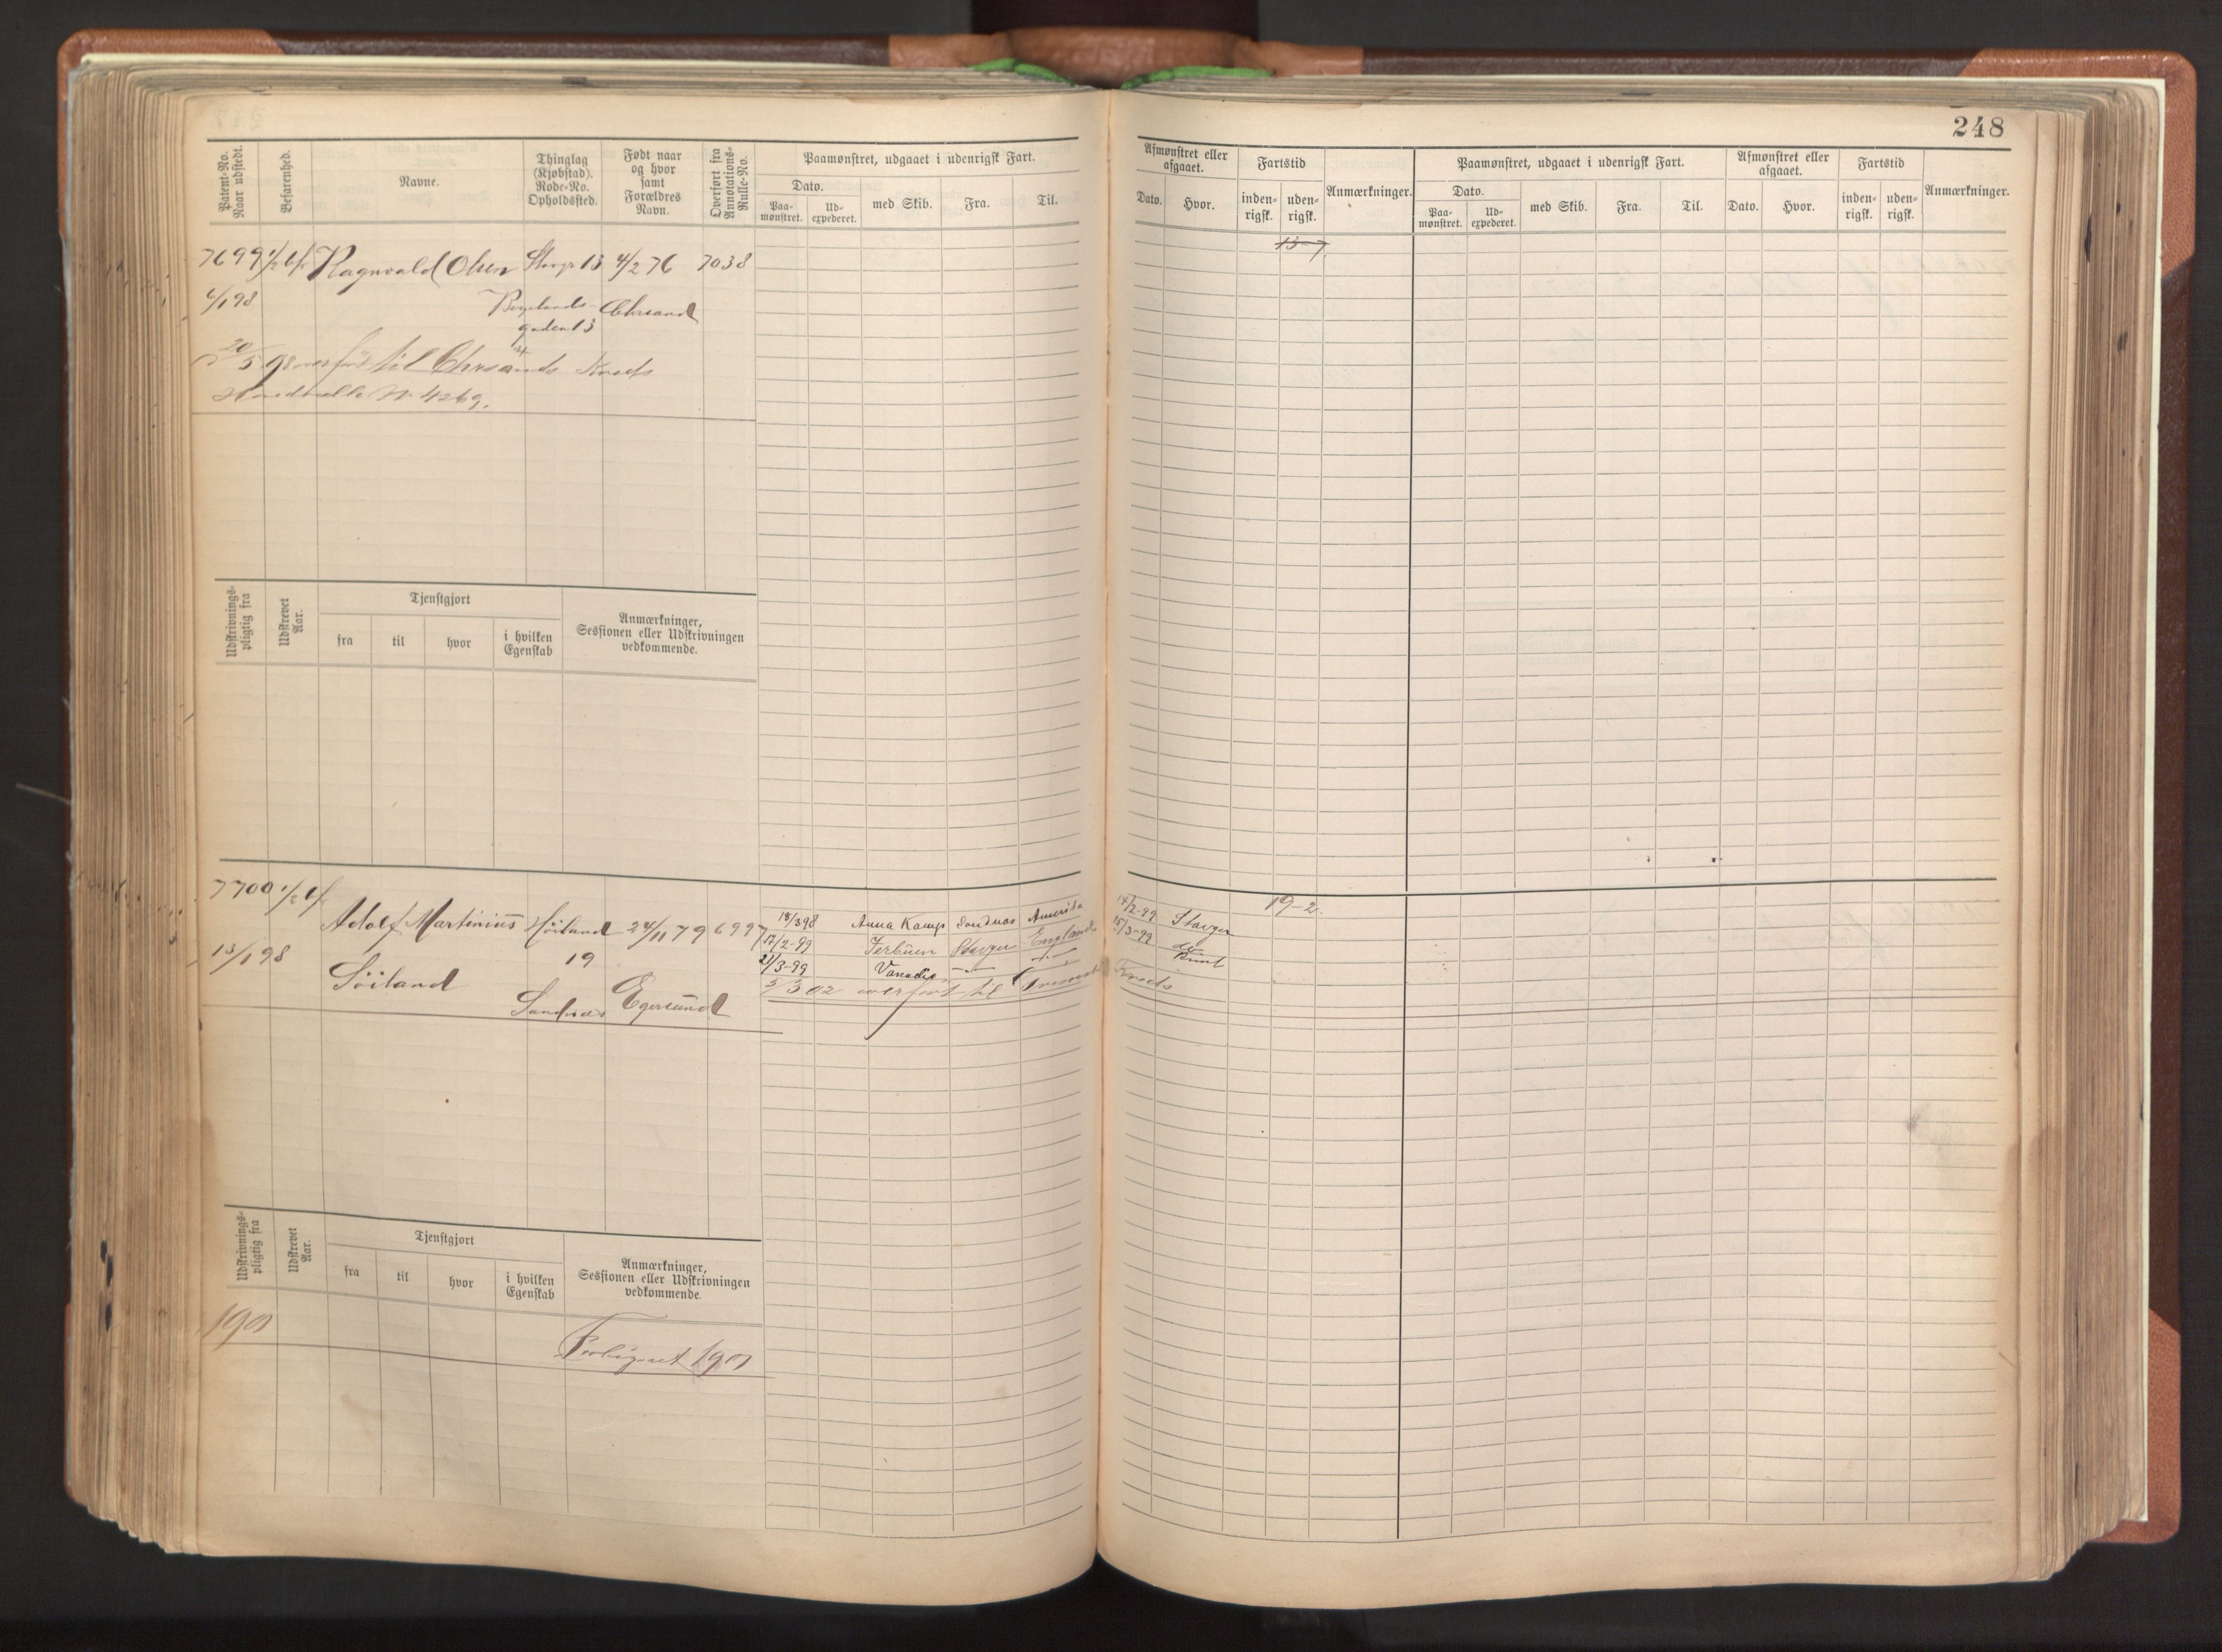 248
Patent-No. Naar udstedt.
Befarenhed.
Navne.
Thinglag (Kjøbstad). Rode-No. Opholdssted.
Født naar og hvor samt Forældres Navn.
Overført fra Annotations-Rulle-No.
Paamønstret, udgaaet i udenrigsk Fart.
Dato.
Paa-mønstret.
Ud-expederet.
med Skib.
Fra.
Til.
Afmønstret eller afgaaet.
Dato.
Hvor.
Fartstid
inden-rigsk.
uden-rigsk.
Anmærkninger.
Paamønstret, udgaaet i udenrigsk Fart.
Dato.
Paa-mønstret.
Ud-expederet.
med Skib.
Fra.
Til.
Afmønstret eller afgaaet.
Dato.
Hvor.
Fartstid
inden-rigsk.
uden-rigsk.
Anmærkninger.
7699 1/2 Ragnvald Olsen 13 4/2 76 7038
13-7
6/1 98 Chrsand
gaden 13
20/5 98 overført til Chrsands Kreds
Hovedrulle Nr 4269.
Udskrivnings-pligtig fra
Udskrevet Aar.
Tjenstgjort
fra
til
hvor
i hvilken Egenskab
Anmærkninger, Sessionen eller Udskrivningen vedkommende.
7700 1/2
Adolf Martinius Höiland 24/11 79 6997
13/1 98 19
Söiland
Sandnes Egersund
18/3 98 Anna Kamp Sandnæs Amerika 14/2-99 Stavger 19-2.
17/2-99 Stavger England 15/3-99 do
21/3-99 Vanadis
5/3 02 overført til Kreds
Udskrivnings-pligtig fra
Udskrevet Aar.
Tjenstgjort
fra
til
hvor
i hvilken Egenskab
Anmærkninger, Sessionen eller Udskrivningen vedkommende.
1901
1901